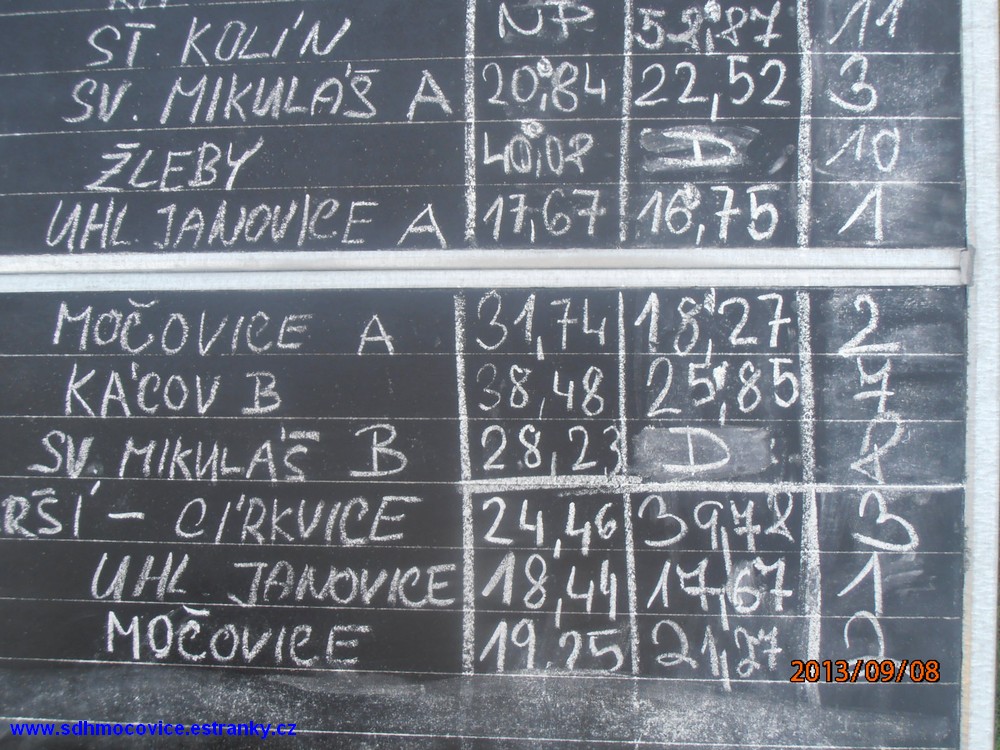 ST KOLÍN NP 52,87 11
SV. MIKULÁŠ A 20,84 22,52 3
ŽLEBY 40,02 D 10
UHL. JANOVICE A 17,67 16,75 1
MOČOVICE A 31,74 18,27 2
KÁCOV B 38,48 25,85 7
SV. MIKULÁŠ B 28,23 D
RŠÍ - CÍRKVICE 24,46 39,72 3
UHL. JANOVICE 18,44 17,67 1
MOČOVICE 19,25 21,27 2
2013/09/08
www.sdhmocovice.estranky.cz